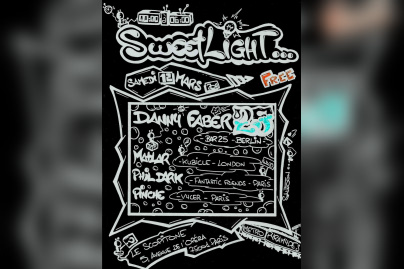 00:00 06:00
SweetLight...
SAMEDI 12 MARS
FREE
DANNY FABER
BAR 25 - BERLIN
MATLAR
- KUBICLE - LONDON
PHIL DARK
- FANTASTIC FRIENDS - PARIS
PINCHE
- VICER - PARIS
LE SCORPTONE
AVENUE DE L'OPÉRA
PARIS
METRO PYRAMIDES